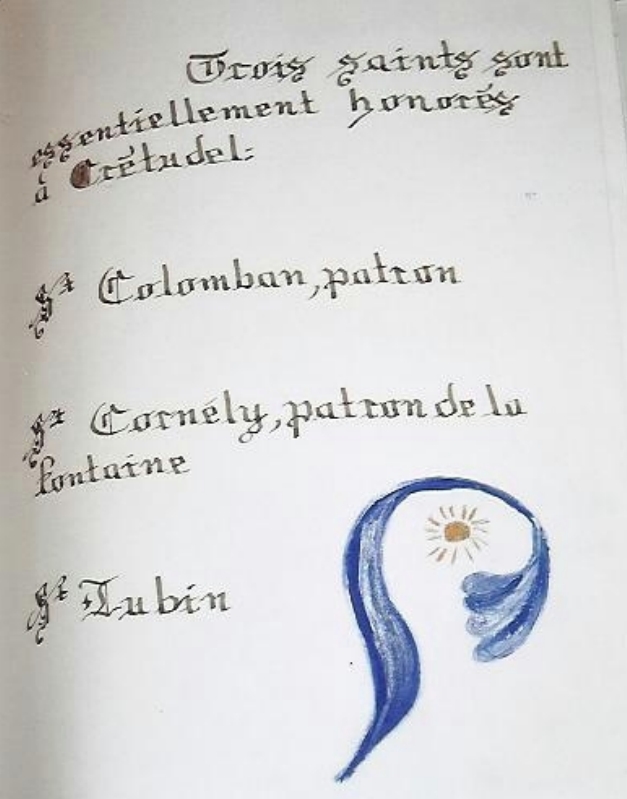 Trois saints sont
essentiellement honorés
à Crétudel:
St Colomban, patron
St Cornély, patron de la
fontaine
St Lubin